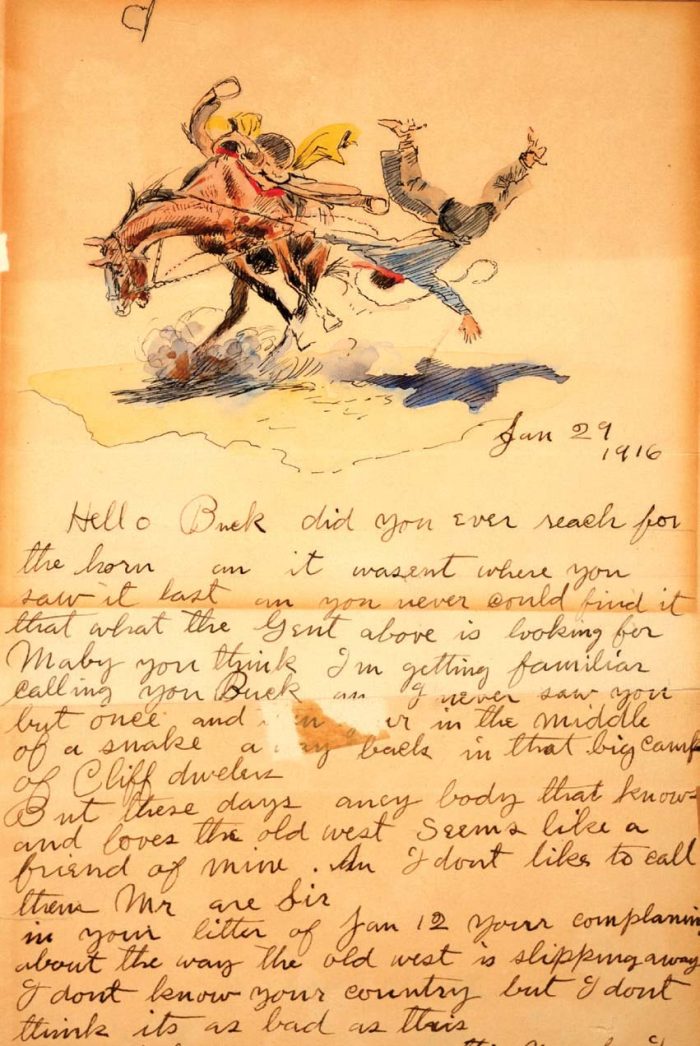 Jan 29
1916
Hello Buck did you ever reach for
the horn an it wasent where you
saw it last an you never could find it
that what the Gent above is looking for
Maby you think I'm getting familiar
calling you Buck an I never saw you
but once and in the middle
of a snake away back in that big camp
of Cliff dwelers
But these days aney body that knows
and loves the old west seems like a
friend of mine. An I dont like to call
them Mr are Sir
in your litter of Jan 12 your complaning
about the way the old west is slipping away
I dont know your country but I dont
think its as bad as this